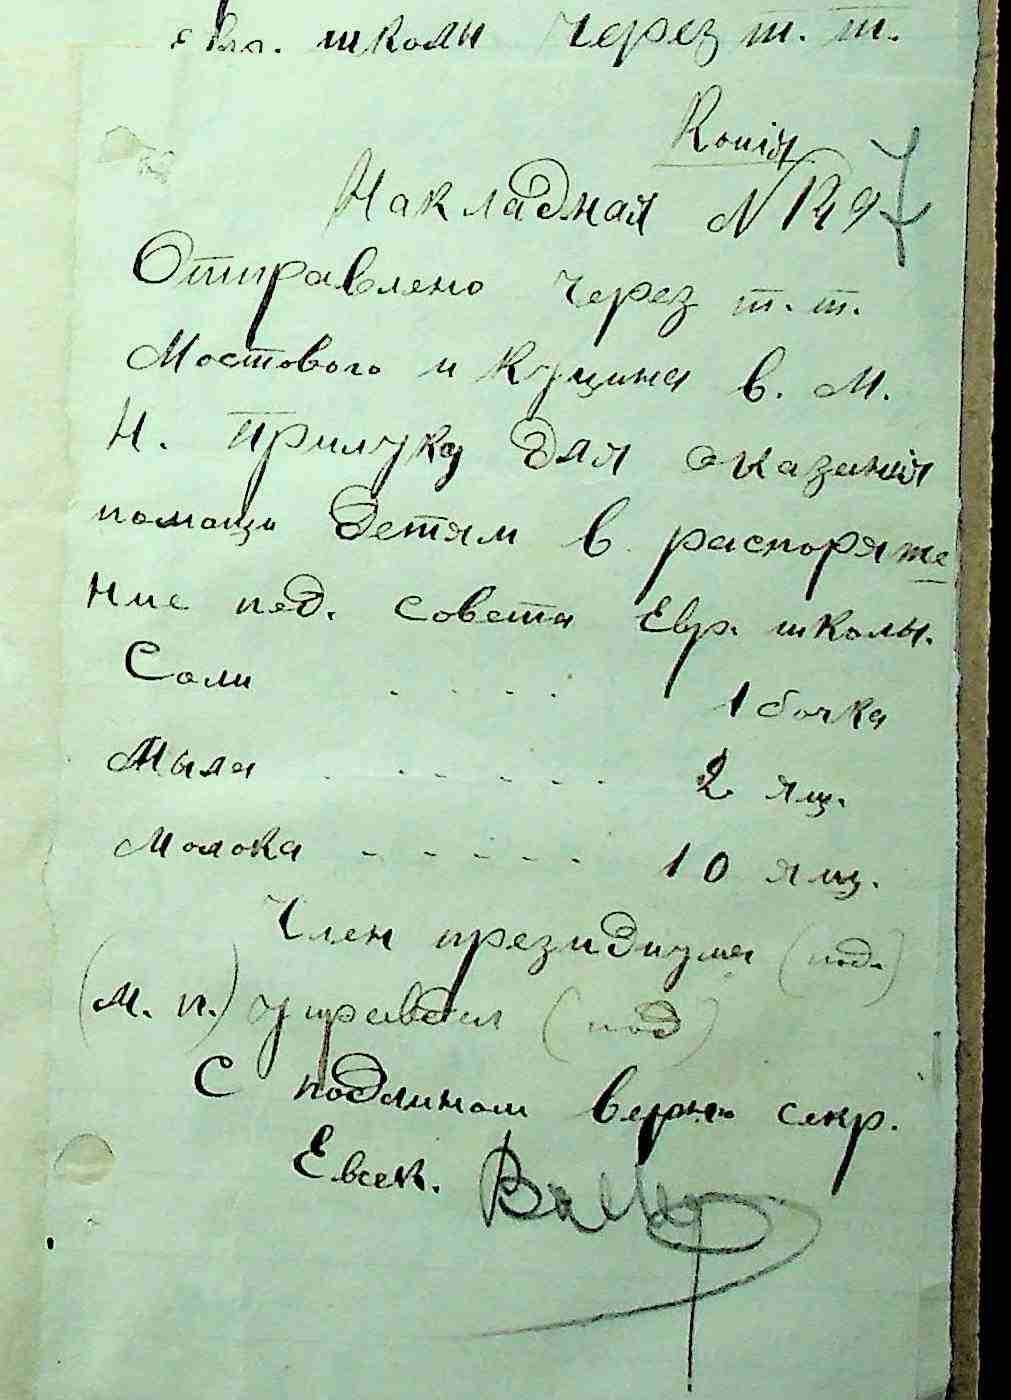 школы через т. т.
Копія
Накладная N 129
Отправлено через т. т.
Мостового и Куцина в. М.
Н. Прилуку для оказания
помощи детям в распоряже
ние пед. совета Евр. школы.
Соли . . . . 1 бочка
Мыла . . . . . . 2 ящ.
Молока - - - - - 10 ящ.
Член президиума (под.)
(М. п.) управдел (под)
С подлином верно секр.
Евсек.